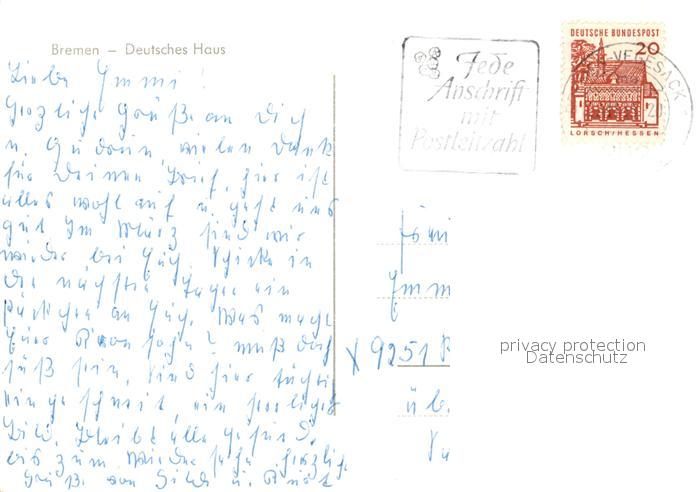 Bremen – Deutsches Haus
Liebe Emmi!
Herzliche Grüße an Dich
u. Gudrun, vielen Dank
für Deinen Brief, hier ist
alles wohl auf u. geht uns
gut Im März sind wir
wieder bei Euch. Schicke in
die nächste Tage ein
Päckchen an Euch. Was macht
Euer ? muß doch
süß sein. Sind hier tüchtig
eingeschneit, ein herrliches
Bild. Bleibt alle gesund,
bis zum Wiedersehn herzliche
Grüße von u.
Jede
Anschrift
mit
Postleitzahl
DEUTSCHE BUNDESPOST
20
VEGESACK
LORSCH/HESSEN
Emm
X 9251
üb.
privacy protection
Datenschutz